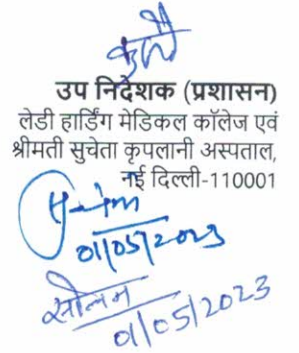 उप निदेशक (प्रशासन)
लेडी हार्डिंग मेडिकल कॉलेज एवं
श्रीमती सुचेता कृपलानी अस्पताल,
नई दिल्ली-110001
01/05/2023
01/05/2023